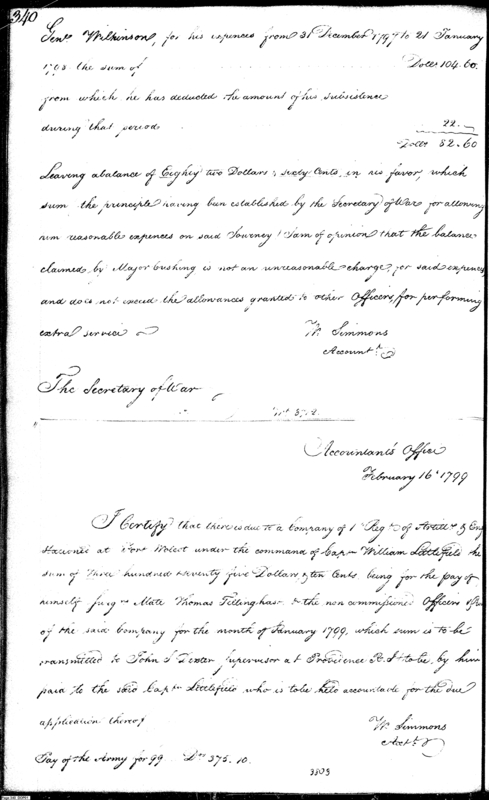 340
Genl Wilkinson, for his expences from 31 December 1797 to 21 January
1798 the sum of Dolls 104.60.
from which he has deducted the amount of his subsistence
during that period 22.
Dolls 82.60
Leaving a balance of Eighty two Dollars & sixty Cents, in his favor, which
sum the principle having been established by the Secretary of War for allowing
him reasonable expences on said Journey I am of opinion that the balance
claimed by Major Cushing is not an unreasonable charge, for said expences
and does not exceed the allowances granted to other Officers, for performing
extra service
Wm Simmons
Accountt
The Secretary of War
Accountant's Office
February 16th 1799
I Certify that there is due to a Company of 1st Regt of Artillt & Eng
stationed at Fort Wolcot under the command of Captn William Littlefield the
sum of Three hundred & seventy five Dollars & ten Cents being for the pay of
himself Surgns Mate Thomas Tillinghast & the non commissioned Officers &
of the said Company for the month of January 1799, which sum is to be
transmitted to John S Dexter Supervisor at Providence R. I. to be, by him
paid to the said Captn Littlefield who is to be held accountable for the due
application thereof
Wm Simmons
Acctt
Pay of the Army for 99 Drs 375.10.
3303